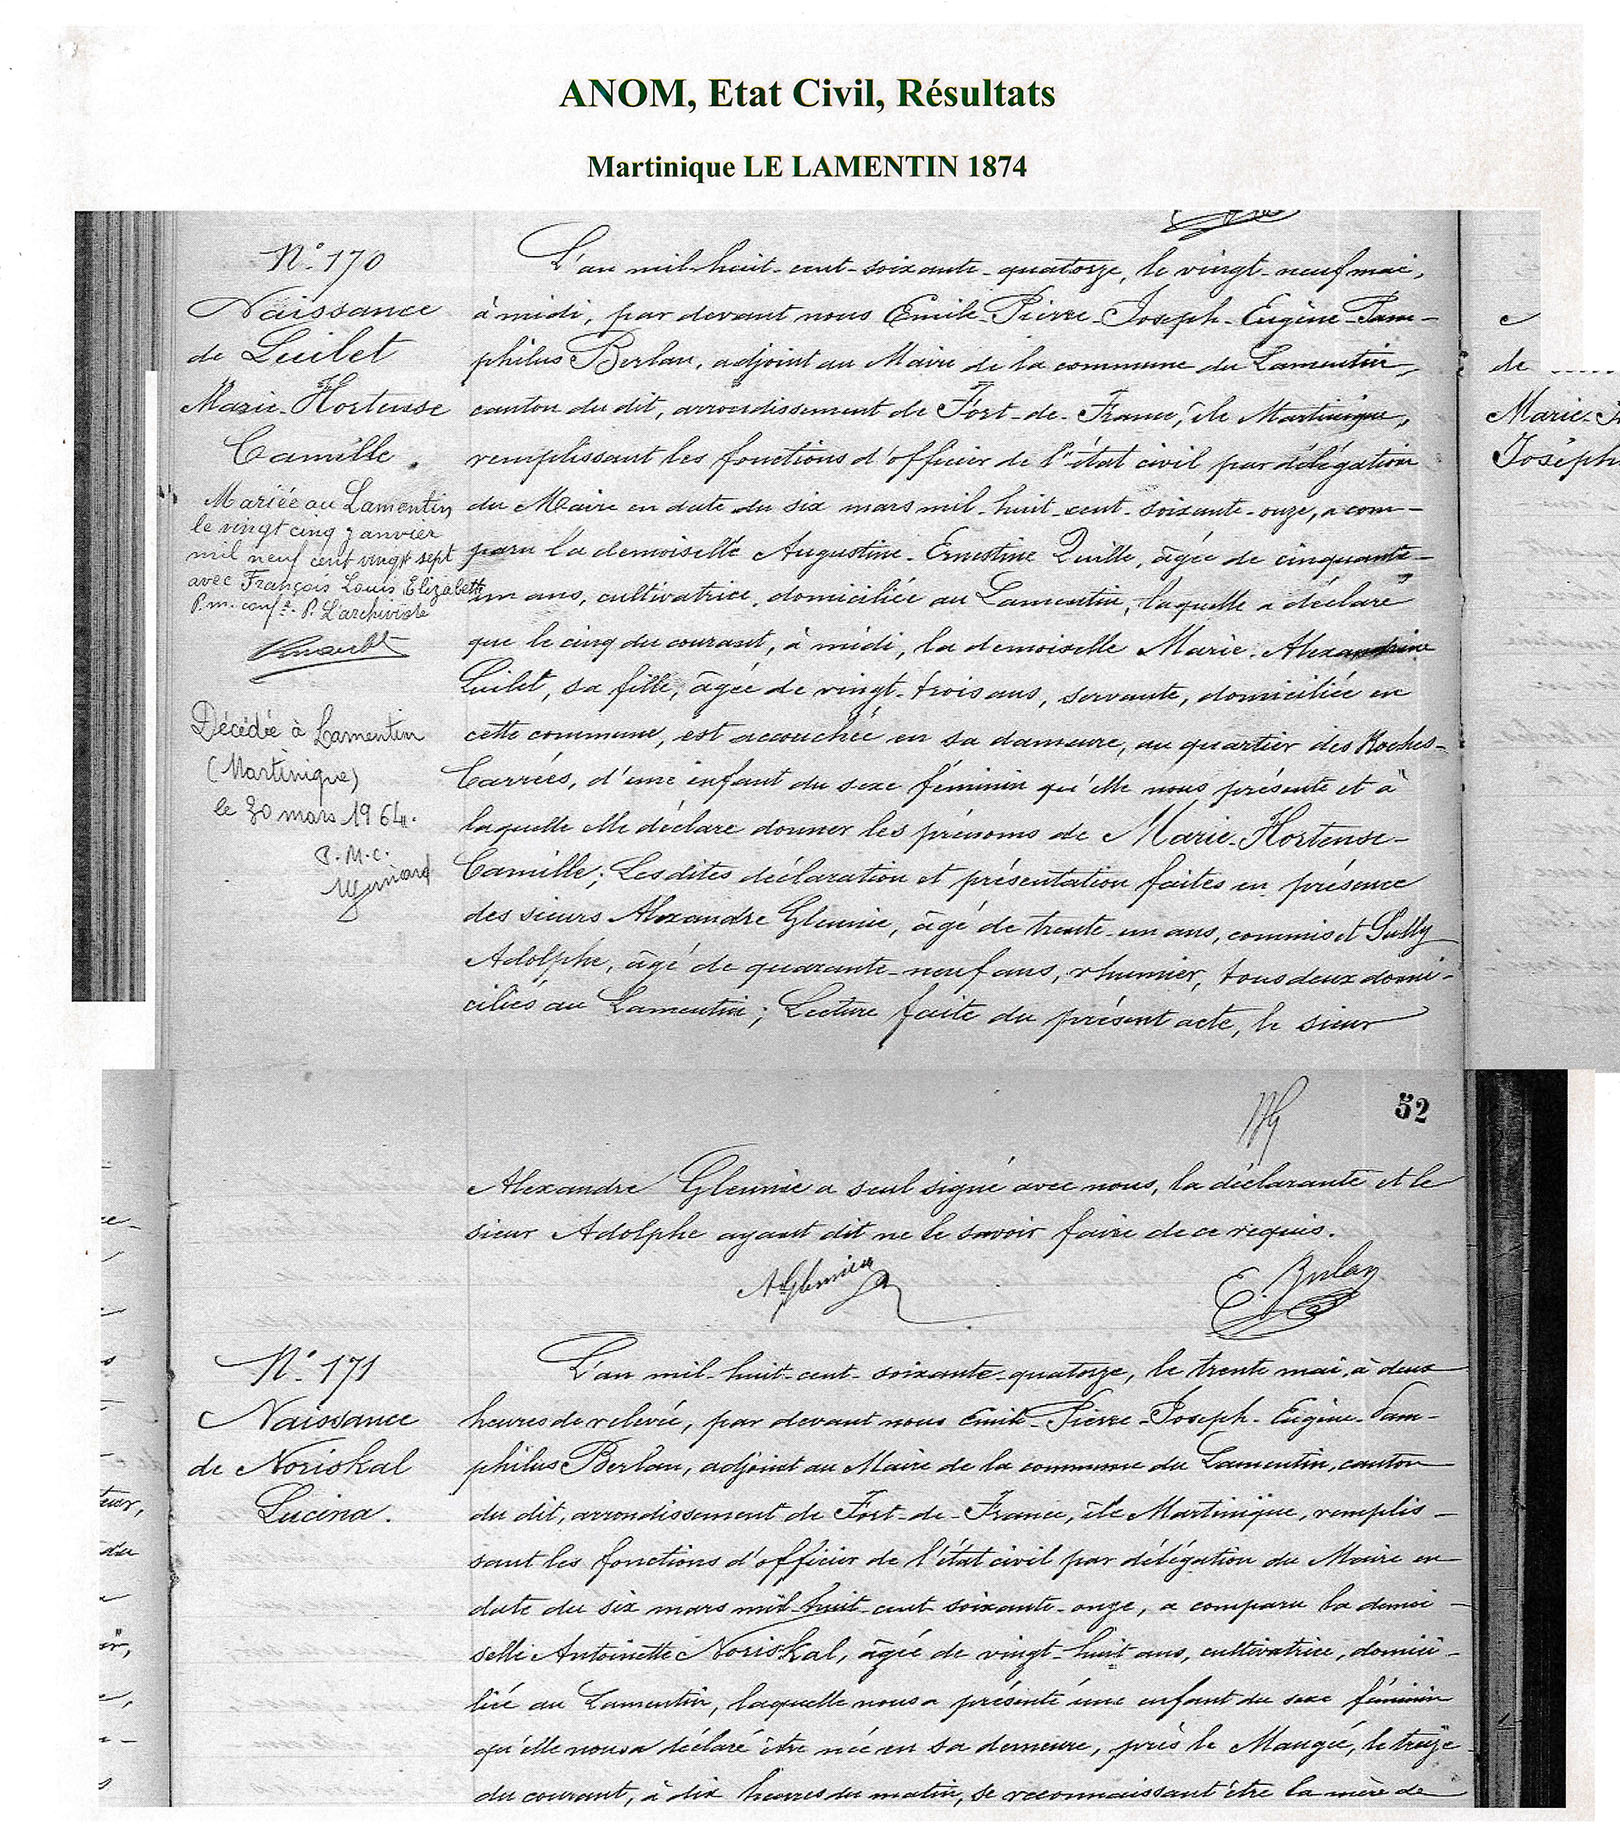 ANOM, Etat Civil, Résultats
Martinique LE LAMENTIN 1874
N° 170
Naissance
de Luilet
Marie-Hortense
Camille.
Mariée au Lamentin
le vingt cinq janvier
mil neuf cent vingt sept
avec François Louis Elizabeth
P. m. conf. P. L'archiviste
Décédée à Lamentin
(Martinique)
le 30 mars 1964.
P.M.C.
L'an mil-huit-cent-soixante-quatorze, le vingt-neuf mai,
à midi, par devant nous Emile-Pierre-Joseph-Eugène-Pam-
philus Berlan, adjoint au Maire de la commune du Lamentin,
canton du dit, arrondissement de Fort-de-France, île Martinique,
remplissant les fonctions d'officier de l'état civil par délégation
du Maire en date du six mars mil-huit-cent-soixante-onze, a com-
paru la demoiselle Augustine-Ernestine Quille, âgée de cinquante-
un ans, cultivatrice, domiciliée au Lamentin, laquelle a déclaré
que le cinq du courant, à midi, la demoiselle Marie-Alexandrine
Luilet, sa fille, âgée de vingt-trois ans, servante, domiciliée en
cette commune, est accouchée en sa demeure, au quartier des Roches-
Carrées, d'une enfant du sexe féminin qu'elle nous présente et à
laquelle elle déclare donner les prénoms de Marie-Hortense-
Camille; Lesdites déclaration et présentation faites en présence
des sieurs Alexandre Gleunie, âgé de trente-un ans, commis et Sully
Adolphe, âgé de quarante-neuf ans, rhumier, tous deux domi-
ciliés au Lamentin; Lecture faite du présent acte, le sieur
de
Marie-
Joseph
52
Alexandre Gleunie a seul signé avec nous, la déclarante et le
sieur Adolphe ayant dit ne le savoir faire de ce requis.
E. Berlan
N° 171
Naissance
de Noriskal
Lucina.
L'an mil-huit-cent-soixante-quatorze, le trente mai, à deux
heures de relevée, par devant nous Emile-Pierre-Joseph-Eugène-Pam-
philus Berlan, adjoint au Maire de la commune du Lamentin, canton
du dit, arrondissement de Fort-de-France, île Martinique, remplis-
sant les fonctions d'officier de l'état civil par délégation du Maire en
date du six mars mil-huit-cent-soixante-onze, a comparu la demoi-
selle Antoinette Noriskal, âgée de vingt-huit ans, cultivatrice, domici-
liée au Lamentin, laquelle nous a présenté une enfant du sexe féminin
qu'elle nous a déclaré être née en sa demeure, près le Mangée, le treize
du courant, à dix heures du matin, se reconnaissant être la mère de